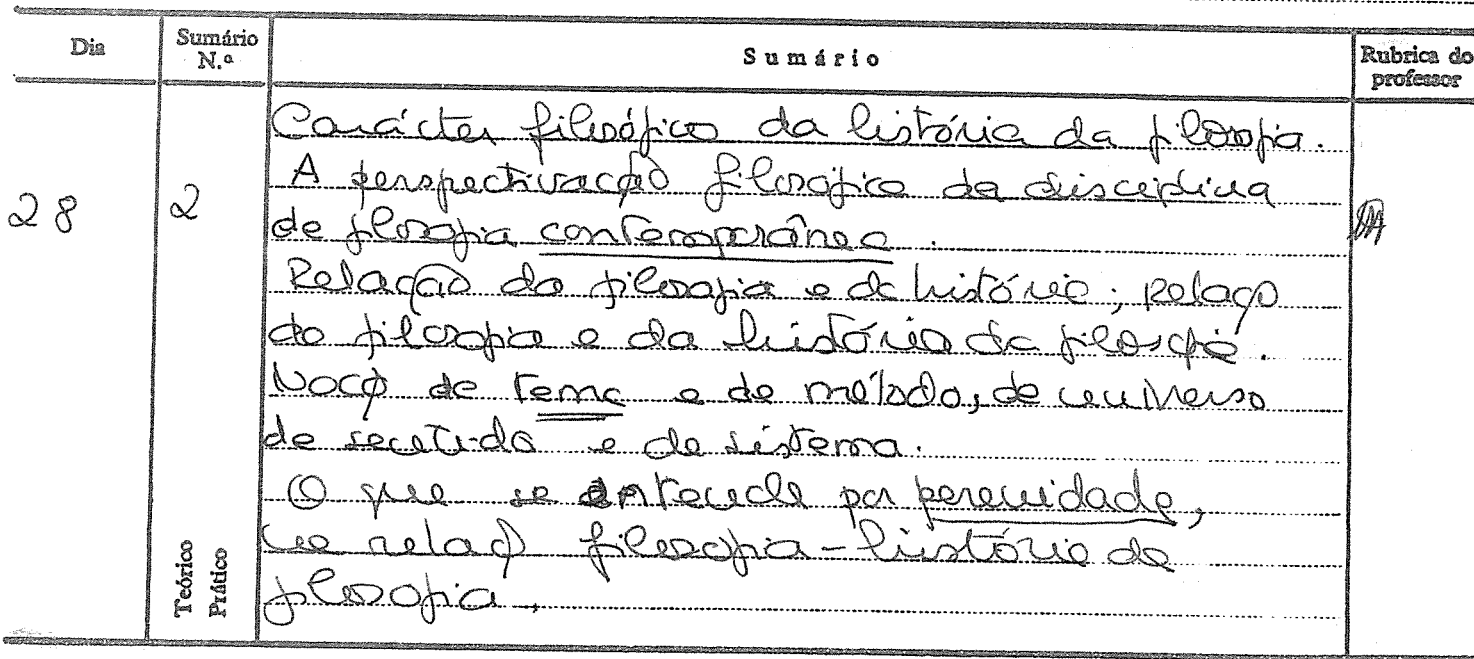 Dia
Sumário N.º
Sumário
Rubrica do professor
28
2
Carácter filosófico da história da filosofia.
A perspectivação filosófica da disciplina
de filosofia contemporânea.
Relação da filosofia e da história; relação
da filosofia e da história da filosofia.
Noção de tema e de método, de universo
de sentido e de sistema.
O que se entende por perenidade,
na relação filosofia - história da
filosofia.
Teórico
Prático